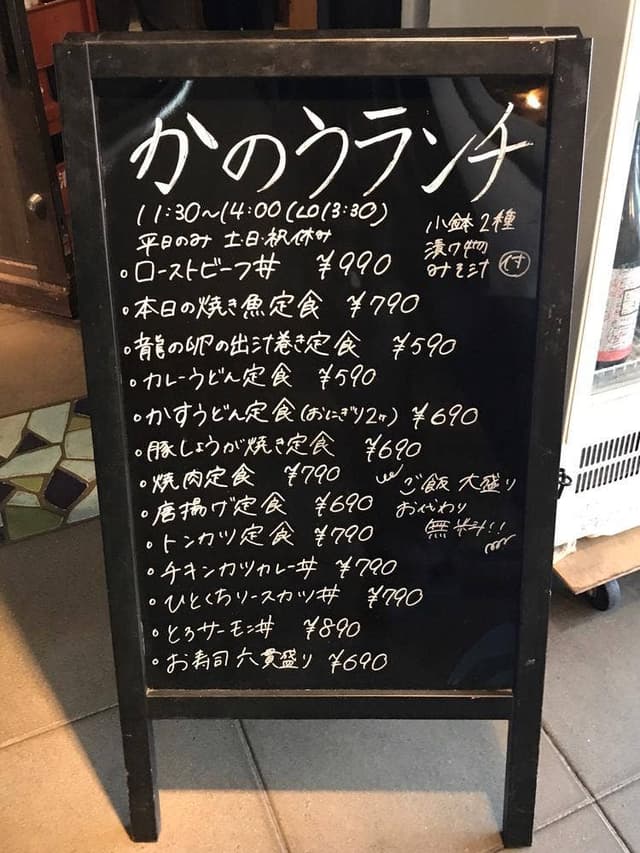 かのうランチ
11:30~14:00(LO13:30)
平日のみ 土日・祝休み
小鉢2種
漬け物
みそ汁 付
・ローストビーフ丼 ¥990
・本日の焼き魚定食 ¥790
・龍の卵の出汁巻き定食 ¥590
・カレーうどん定食 ¥590
・かすうどん定食(おにぎり2ヶ) ¥690
・豚しょうが焼き定食 ¥690
・焼肉定食 ¥790
・唐揚げ定食 ¥690
・トンカツ定食 ¥790
・チキンカツカレー丼 ¥790
・ひとくちソースカツ丼 ¥790
・とろサーモン丼 ¥890
・お寿司六貫盛り ¥690
ご飯 大盛り
おかわり
無料!!